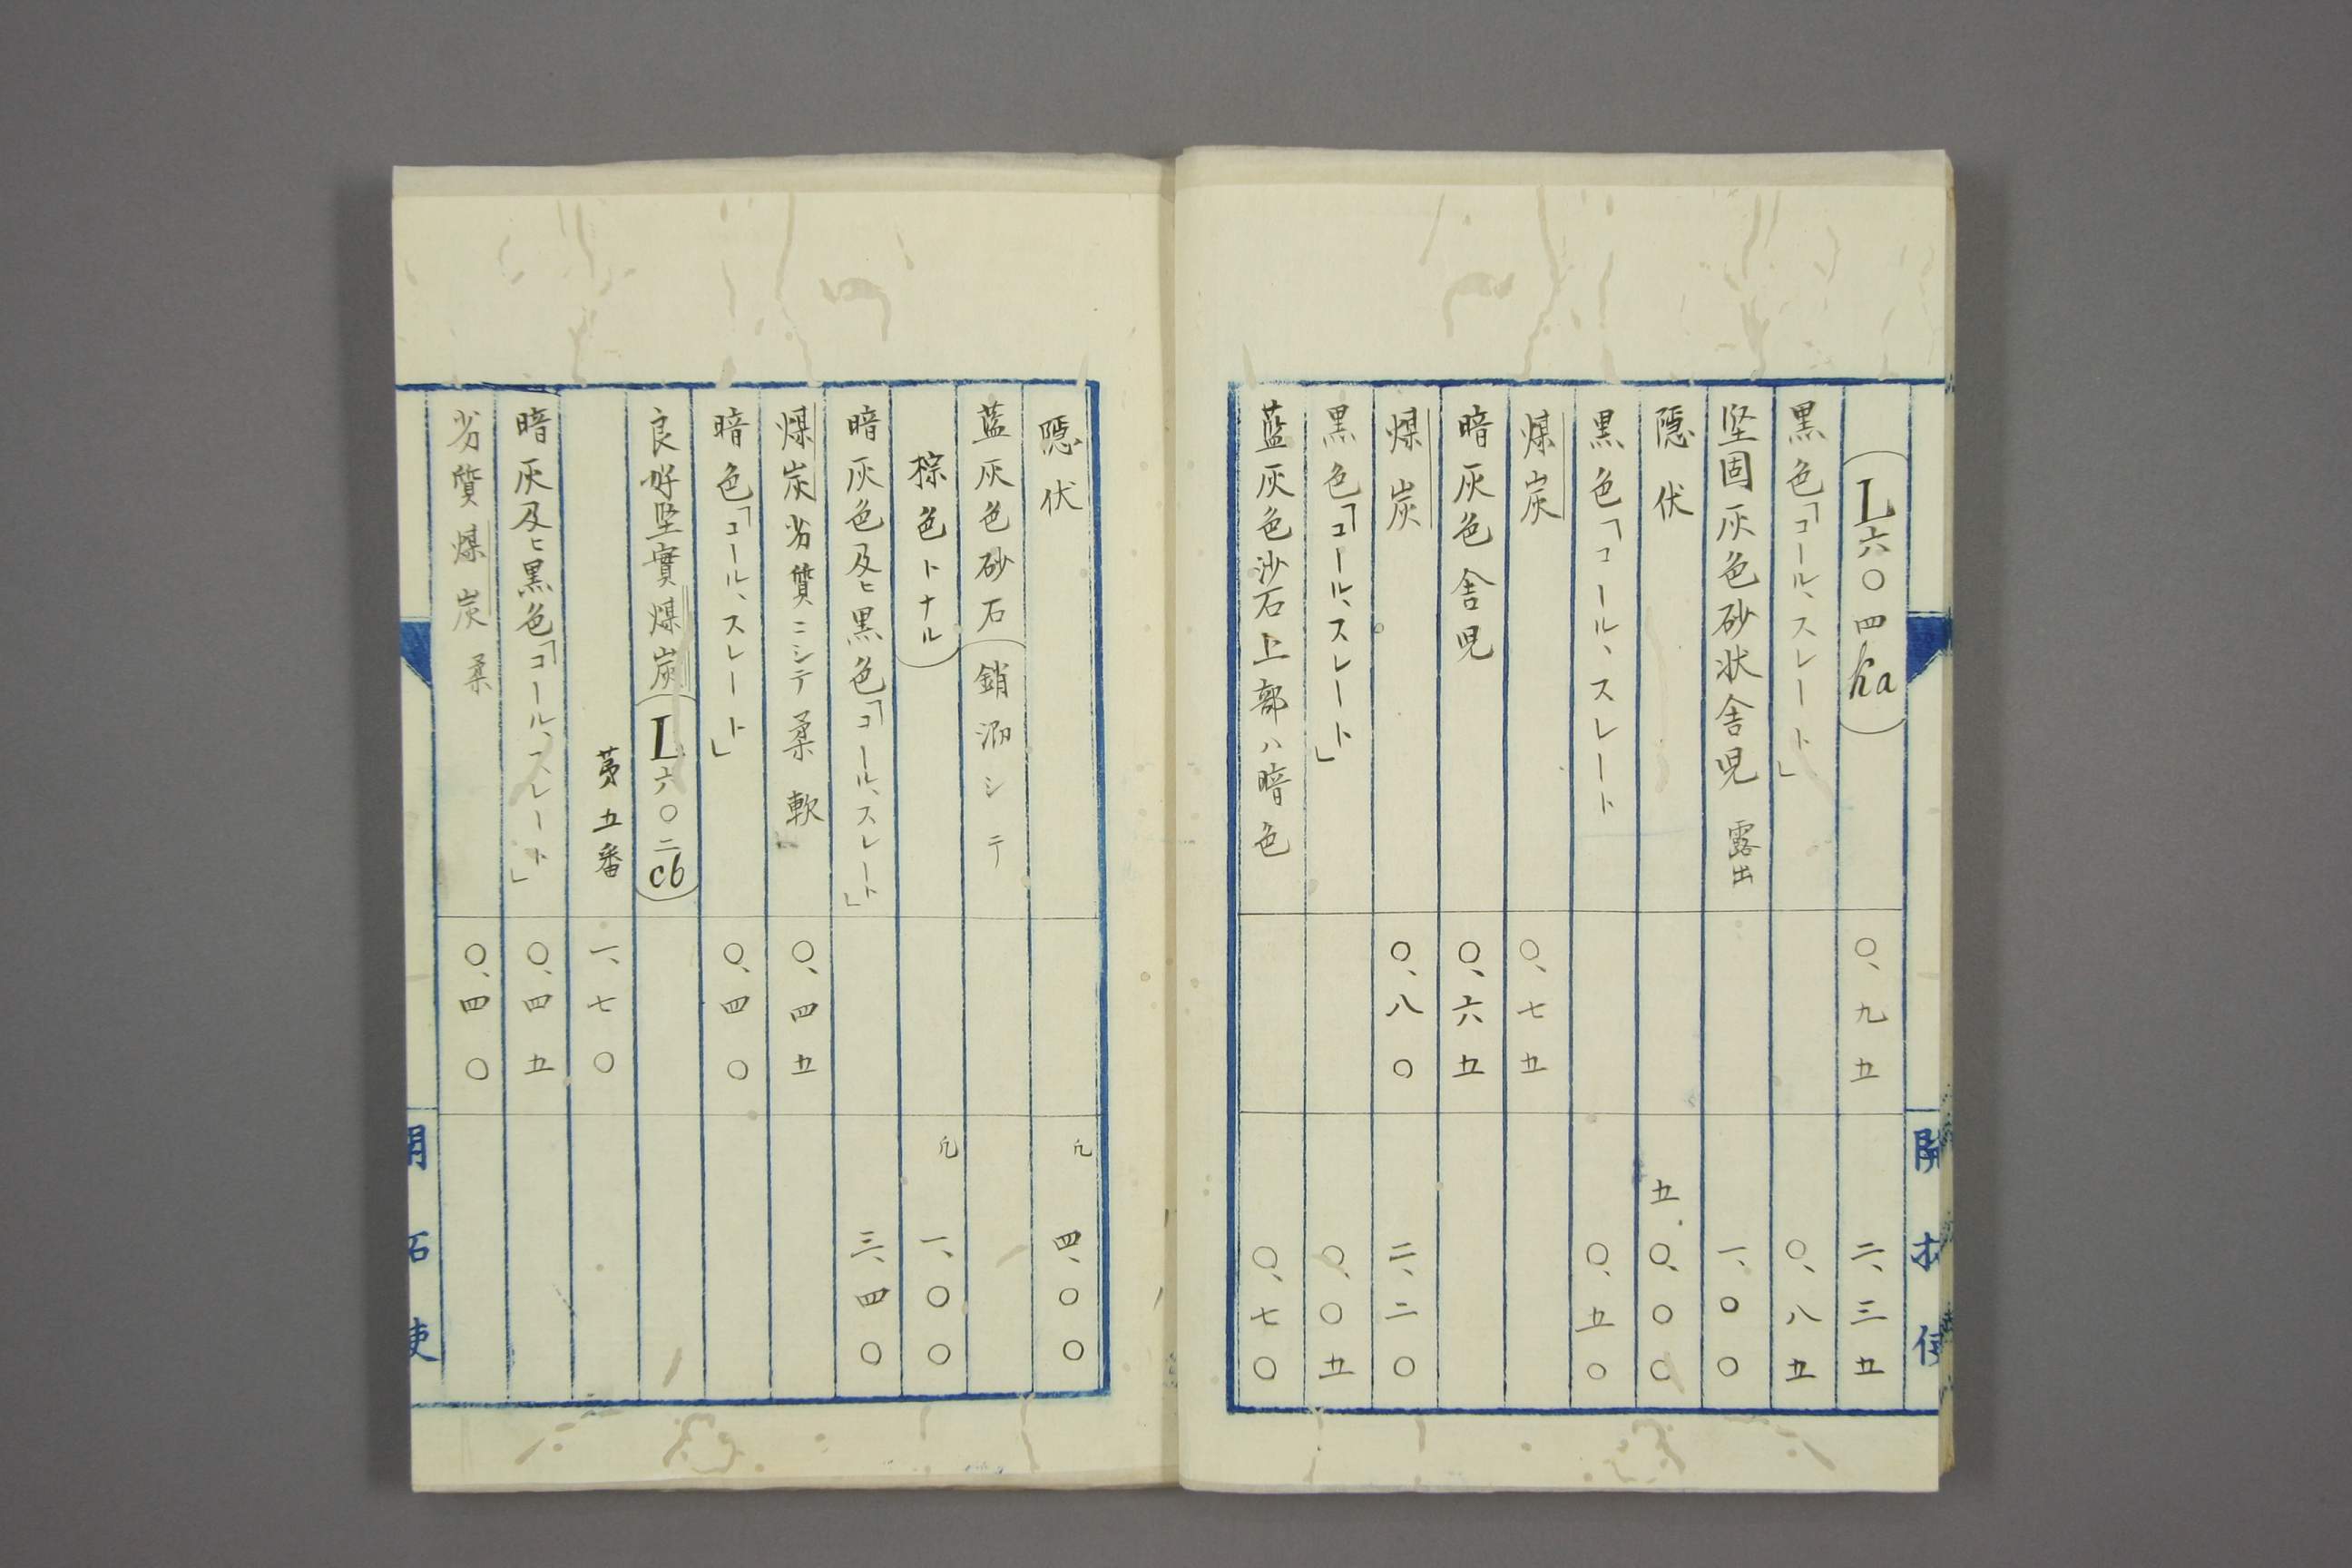 (L六〇四ha) 〇、九五 二、三五
黒色「コール、スレート」 〇、八五
坚固灰色砂状舎児 露出 一、〇〇
隠伏 五、〇、〇〇
黒色「コール、スレート 〇、五〇
煤炭 〇、七五
暗灰色舎児 〇、六五
煤炭 〇、八〇 二、二〇
黒色「コール、スレート」 〇、〇五
藍灰色沙石上部ハ暗色 〇、七〇
隠伏 凢 四、〇〇
藍灰色砂石(銷泐シテ
棕色トナル) 凢 一、〇〇
暗灰色及ヒ黒色「コール、スレート」 三、四〇
煤炭劣質ニシテ柔軟 〇、四五
暗色「コール、スレート」 〇、四〇
良好坚實煤炭(L六〇二cb)
苐五番 一、七〇
暗灰及ヒ黒色「コール、スレート」 〇、四五
劣質煤炭柔 〇、四〇